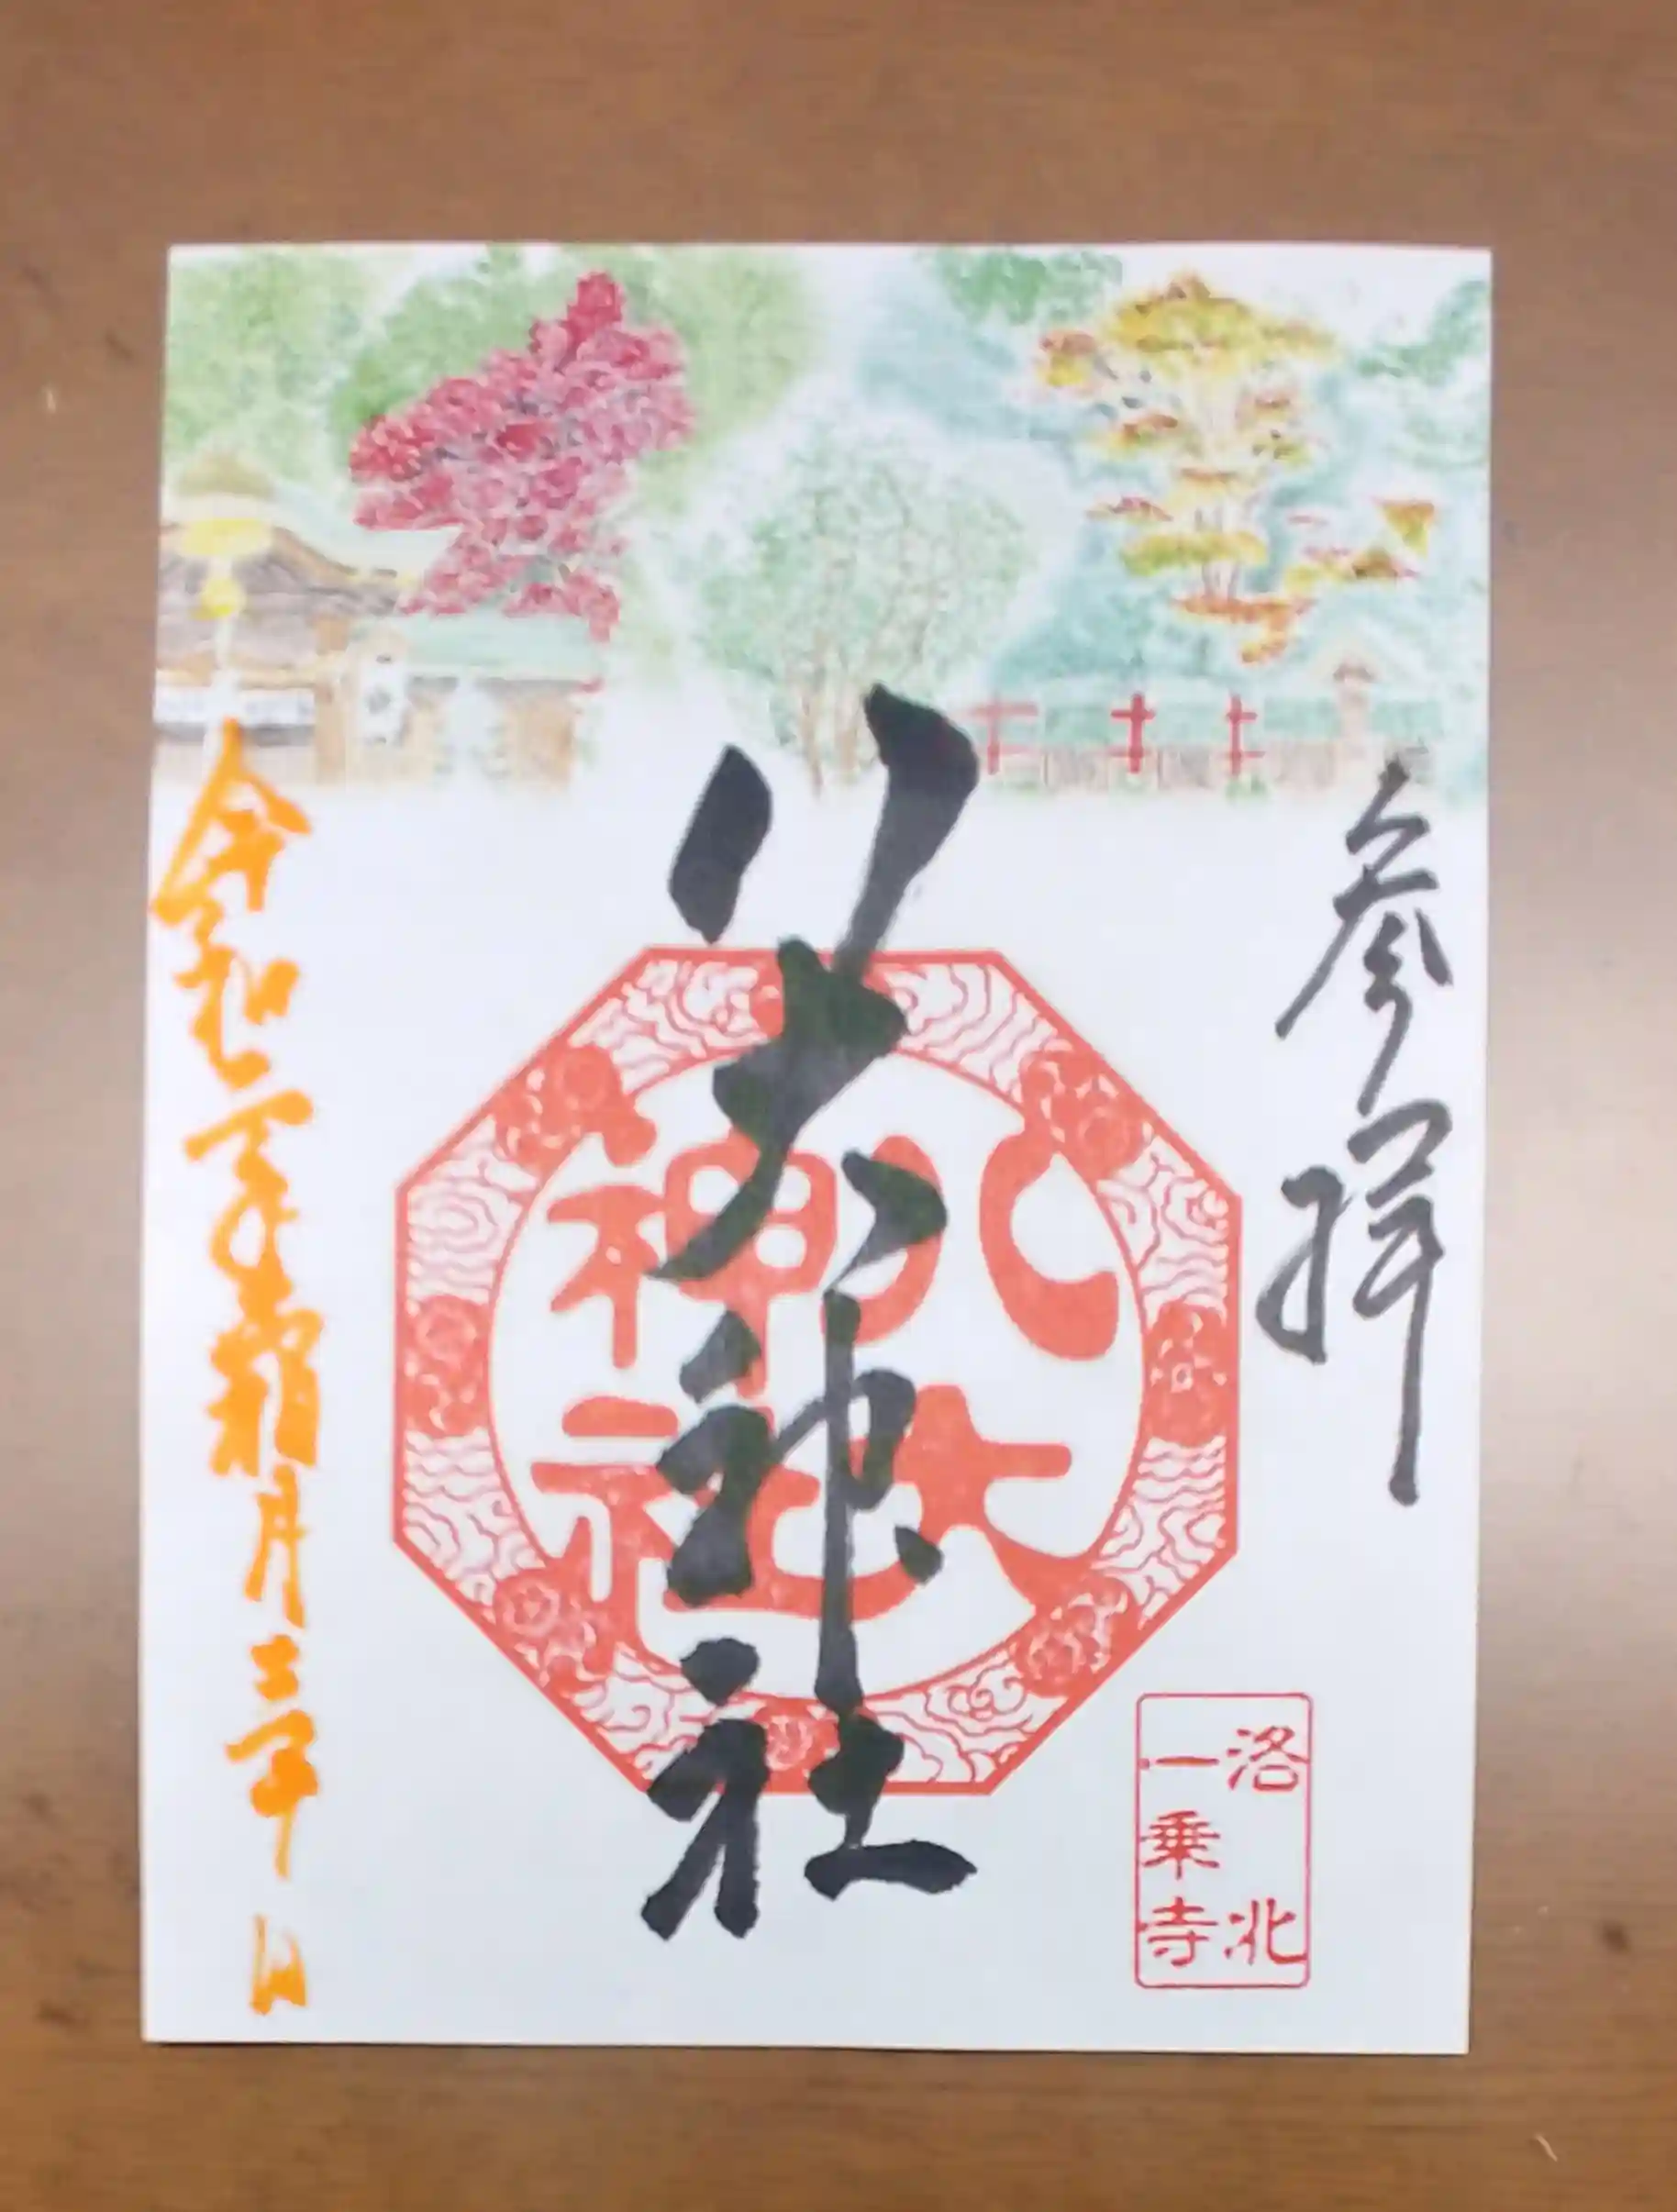 参拝
八大神社
八大
神社
洛北
一乗寺
令和
霜月
日